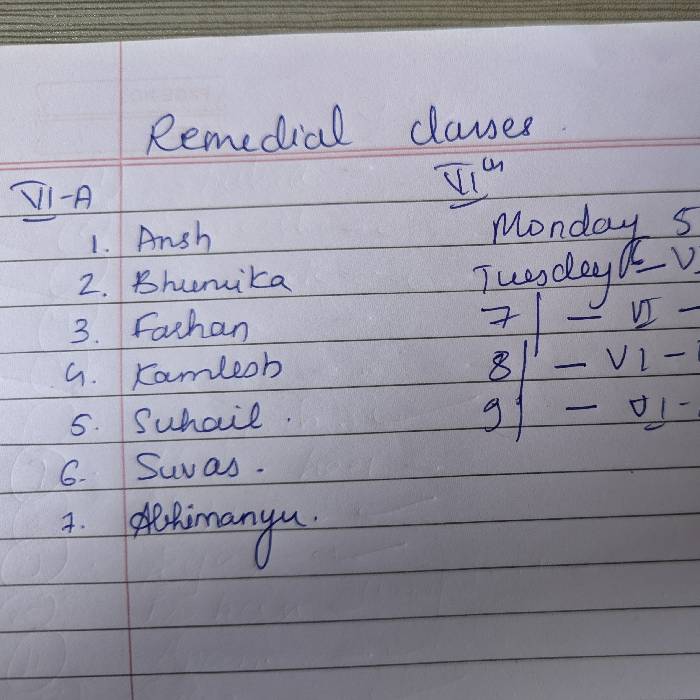 Remedial classes.
VI-A
VI th
1. Ansh
Monday 5
2. Bhumika
Tuesday 6 - V
3. Farhan
7 | - VI -
4. Kamlesh
8 | - VI -
5. Suhail.
9 | - VI -
6. Suvas.
7. Abhimanyu.